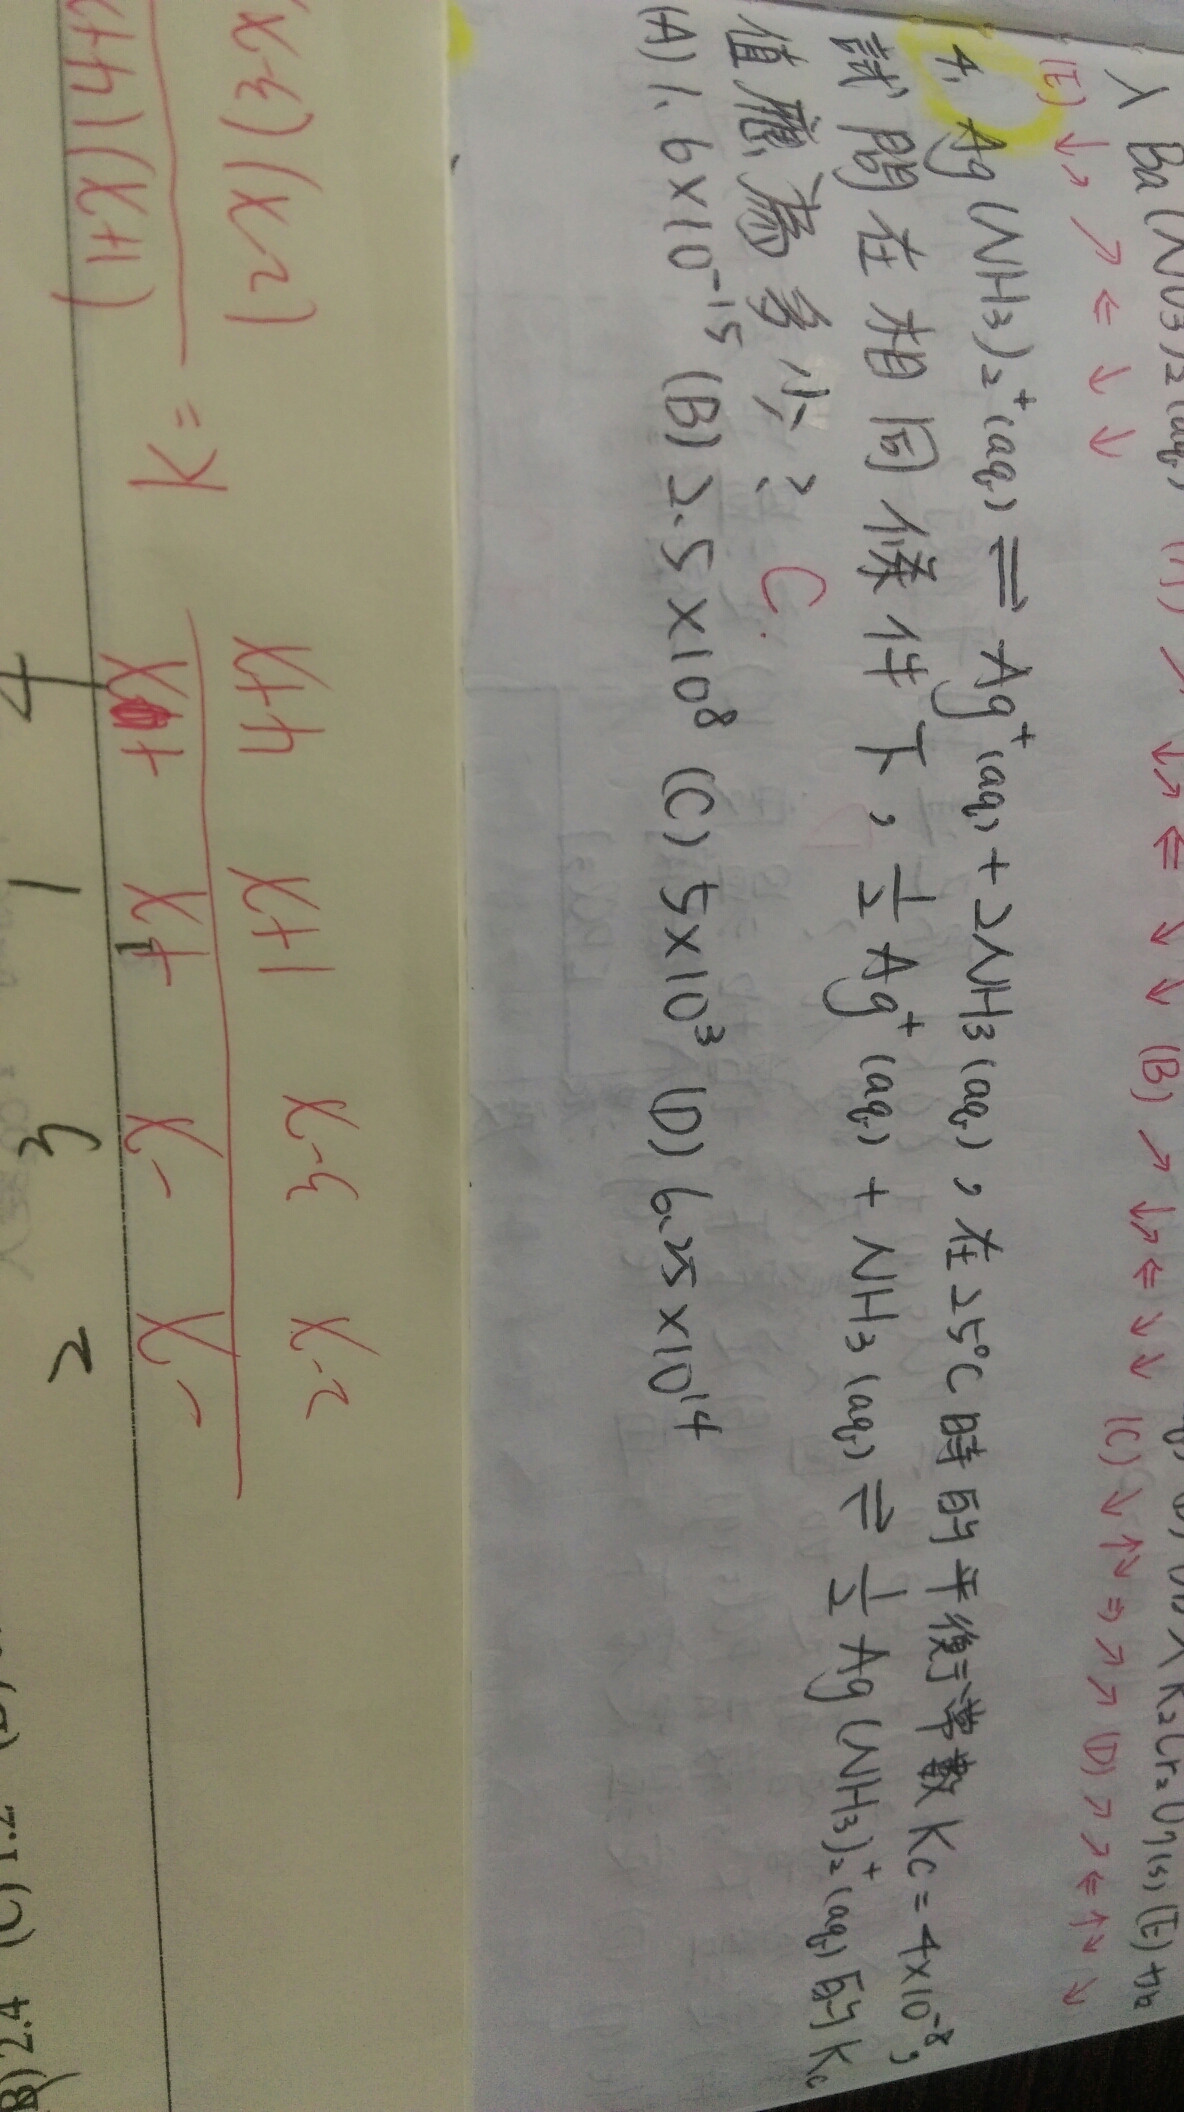 入 Ba(NO3)2(aq)
(E) ↓↗ ↗ ⇐ ↓ ↓
↓↗ ⇐ ↓ ↓ (B) ↗ ↓↗ ⇐ ↓ ↓ (C) ↓ ↑↘ ⇒ ↗ ↗ (D) ↗ ↗ ⇐ ↑↘ ↓
入 K2Cr2O7(s) (E)
4. Ag(NH3)2+(aq) ⇌ Ag+(aq) + 2NH3(aq),在25°C時的平衡常數Kc=4×10-8,
試問在相同條件下,1/2 Ag+(aq) + NH3(aq) ⇌ 1/2 Ag(NH3)2+(aq)的Kc
值應為多少? C.
(A) 1.6×10-15 (B) 2.5×108 (C) 5×103 (D) 6.25×1014
4+x 1+x 3-x 2-x
+x +x -x -x
(1+x) = K
4 1 3 2
(C) 1.2
(B) 2.4